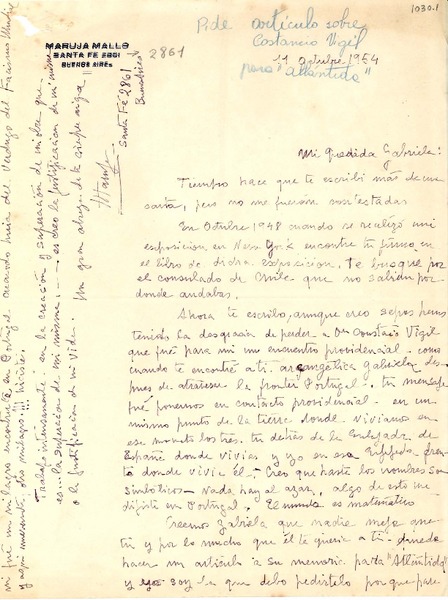 1030.1
Pide artículo sobre
Costancio Vigil
para "Atlántida"
MARUJA MALLO
SANTA FE 2861
BUENOS AIRES
2861
11 octubre 1954
Mi querida Gabriela:
Tiempo hace que te escribí más de una
carta, pero no me fueron contestadas
En Octubre 1948 cuando se realizó mi
exposición en New York encontré tu firma en
el libro de dicha exposición, te busqué por
el consulado de Chile que no sabían por
donde andabas.
Ahora te escribo, aunque creo sepas pues
tenido la desgracia de perder a Dn Constancio Vigil
que fué para mi un encuentro providencial. como
cuando te encontré a ti. arcangélica Gabriela des-
pues de atravesar la frontera Portugal. tu mensaje
fué ponernos en contacto providencial. en un
mismo punto de la tierra donde vivíamos en
ese mundo los tres. tu detrás de la Embajada de
España donde vivías y yo en esa
donde vivía él. Creo que hasta los nombres son
simbólicos. Nada hay al azar, algo de esto me
dijiste en Portugal. El mundo es matemático
Creemos Gabriela que nadie mejor que
tu y por lo mucho que él te quería a ti. puede
hacer un artículo a su memoria para "Atlántida"
y yo soy la que debo pedírtelo por que fue
mi fué un milagro encontrarte en Portugal cuando huía del verdugo del Facismo Mundial
y aquí encuentro, otro milagro"
Trabajo intensamente en la creación y superación de mi obra que
es la superación de mi misma creo la justificación de mi misma
o la justificación de mi vida. Un gran abrazo de tu siempre amiga
Maruja
Santa Fé 2861
Buenos Aires